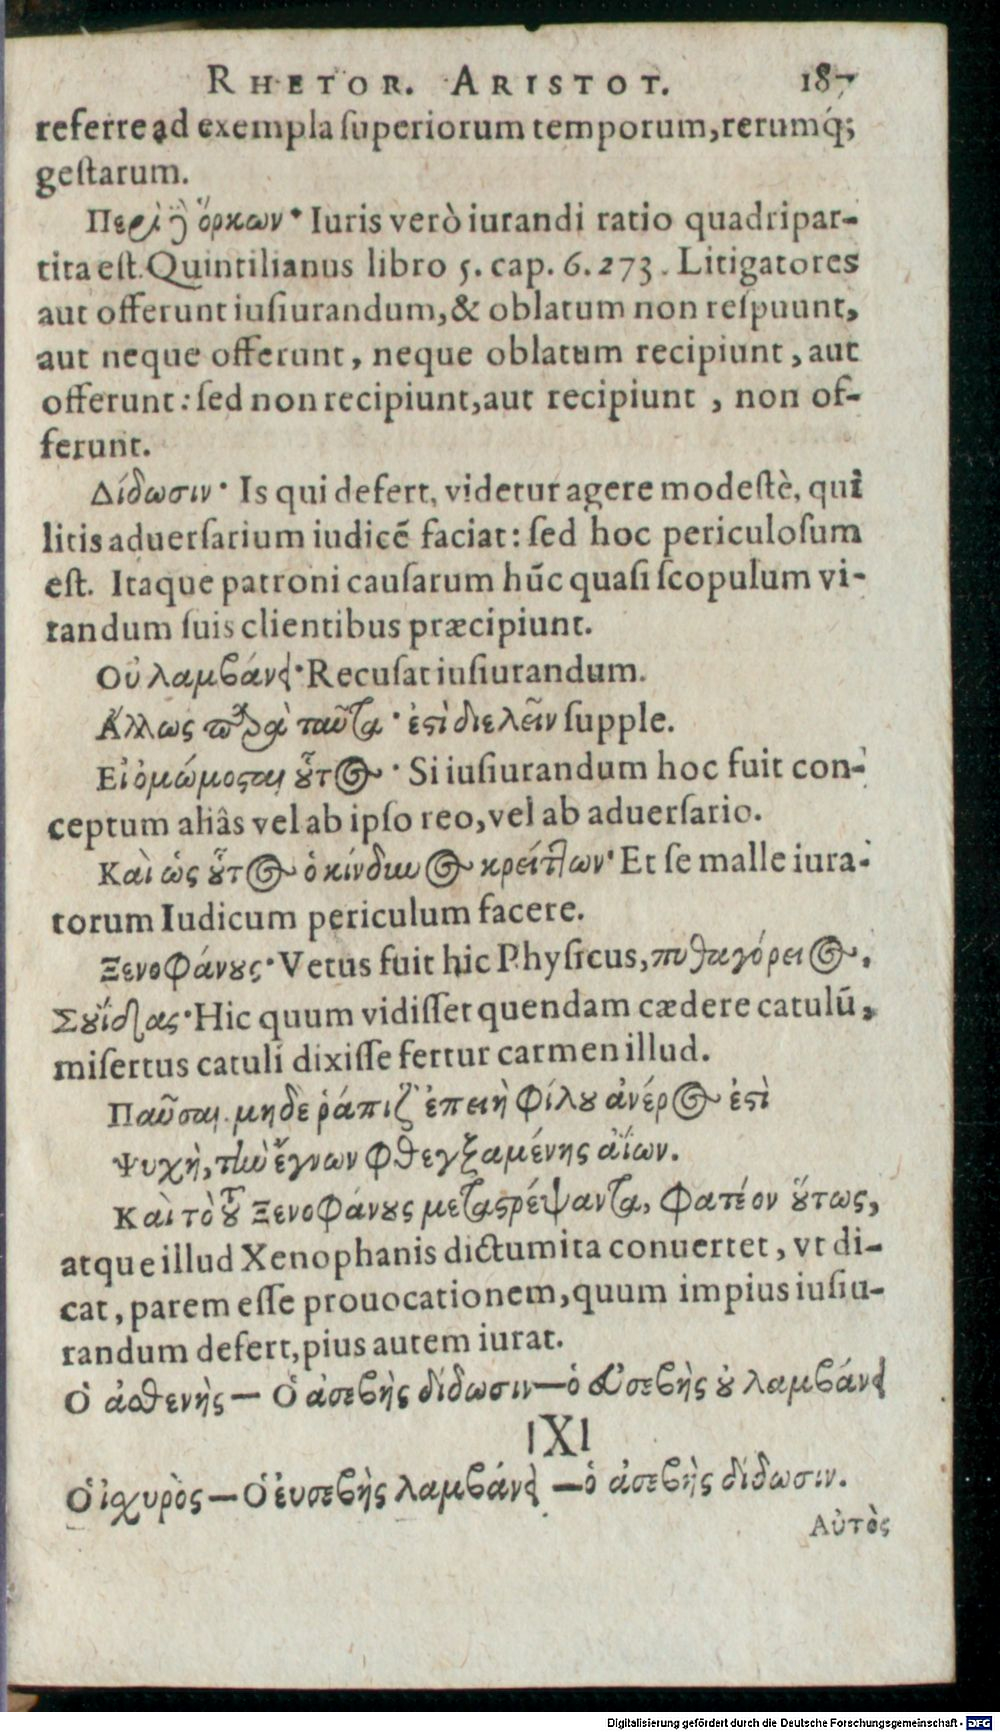 RHETOR. ARISTOT. 187
referre ad exempla ſuperiorum temporum, rerumq́;
geſtarum.
Περὶ ἢ ὅρκων· Iuris verò iurandi ratio quadripar-
tita eſt. Quintilianus libro 5. cap. 6. 273. Litigatores
aut offerunt iuſiurandum, & oblatum non reſpuunt,
aut neque offerunt, neque oblatum recipiunt, aut
offerunt: ſed non recipiunt, aut recipiunt, non of-
ferunt.
Δίδωσιν· Is qui defert, videtur agere modeſtè, qui
litis aduerſarium iudicē faciat: ſed hoc periculoſum
eſt. Itaque patroni cauſarum hūc quaſi ſcopulum vi-
tandum ſuis clientibus præcipiunt.
Οὐ λαμβάνει· Recuſat iuſiurandum.
Ἄλλως παρὰ ταῦτα· ἐστὶ διελεῖν ſupple.
Εἰ ὀμώμοσται οὗτος· Si iuſiurandum hoc fuit con-
ceptum aliâs vel ab ipſo reo, vel ab aduerſario.
Καὶ ὡς οὗτος ὁ κίνδυνος κρείττων· Et ſe malle iura-
torum Iudicum periculum facere.
Ξενοφάνους· Vetus fuit hic Phyſicus, πυθαγόρειος,
Σουΐδας· Hic quum vidiſſet quendam cædere catulū,
miſertus catuli dixiſſe fertur carmen illud.
Παῦσαι. μηδὲ ῥάπιζ' ἐπειὴ φίλου ἀνέρος ἐστὶ
Ψυχὴ, τὴν ἔγνων φθεγξαμένης ἀΐων.
Καὶ τὸ τοῦ Ξενοφάνους μεταστρέψαντα, φατέον οὕτως,
atque illud Xenophanis dictum ita conuertet, vt di-
cat, parem eſſe prouocationem, quum impius iuſiu-
randum defert, pius autem iurat.
Ὁ ἀσθενὴς — Ὁ ἀσεβὴς δίδωσιν — ὁ εὐσεβὴς οὐ λαμβάνει
|X|
Ὁ ἰσχυρὸς — Ὁ ἐυσεβὴς λαμβάνει — ὁ ἀσεβὴς δίδωσιν.
Αὐτὸς
Digitalisierung gefördert durch die Deutsche Forschungsgemeinschaft - DFG